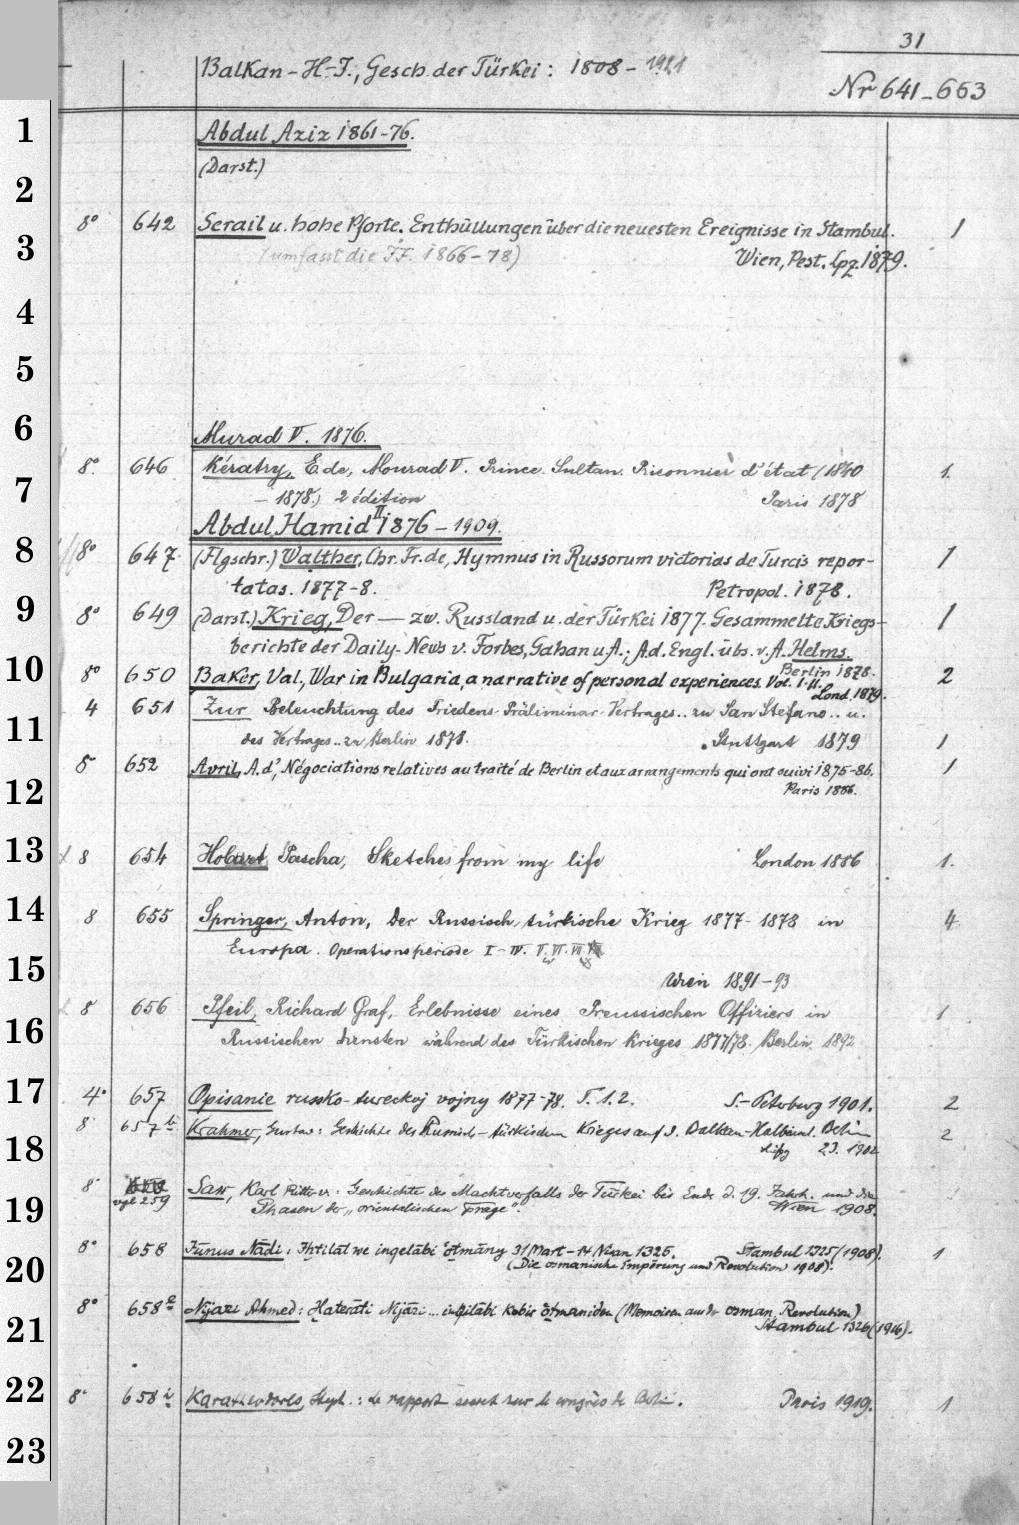 31
Balkan-H-J., Gesch. der Türkei: 1808-1921
Nr 641-663
1
Abdul Aziz 1861-76.
(Darst.)
2
8° 642 Serail u. hohe Pforte. Enthüllungen über die neuesten Ereignisse in Stambul. 1
3
(umfasst die JJ. 1866-78) Wien, Pest. Lpz. 1879.
4
5
6
Murad V. 1876.
8° 646 Kératry, E. de, Mourad V. Prince. Sultan. Prisonnier d'état (1840 1.
7
- 1878.) 2 édition Paris 1878
Abdul Hamid II 1876-1909.
8
8° 647. (Flgschr.) Walther, Chr. Fr. de, Hymnus in Russorum victorias de Turcis repor- 1
tatas. 1877-8. Petropol. 1878.
9
8° 649 (Darst.) Krieg, Der — zw. Russland u. der Türkei 1877. Gesammelte Kriegs- 1
berichte der Daily-News v. Forbes, Gahan u A.; A.d. Engl. übs. v. A. Helms.
Berlin 1878.
10
8° 650 Baker, Val., War in Bulgaria, a narrative of personal experiences. Vol. I. II. 2
Lond. 1879.
4 651 Zur Beleuchtung des Friedens-Präliminar-Vertrages .. zu San Stefano .. u.
11
des Vertrages .. zu Berlin 1878. Stuttgart 1879 1
8° 652 Avril, A. d', Négociations relatives au traité de Berlin et aux arrangements qui ont suivi 1875-86. 1
12
Paris 1886.
13
8 654 Hobart Pascha, Sketches from my life London 1886 1.
14
8 655 Springer, Anton, Der Russisch-türkische Krieg 1877-1878 in 4
Europa. Operationsperiode I-IV. V. VI. VII.
15
Wien 1891-93
8 656 Pfeil, Richard Graf, Erlebnisse eines Preussischen Offiziers in 1
16
Russischen Diensten während des Türkischen Krieges 1877/78. Berlin, 1892
17
4° 657 Opisanie russko-tureckoj vojny 1877-78. T. 1. 2. S.-Peterburg 1901. 2
8° 657 b Krahmer, Gustav: Geschichte des Russisch-türkischen Krieges auf d. Balkan-Halbinsel. Berlin 2
18
1902
8° vgl 259 Sax, Karl Ritter v.: Geschichte des Machtverfalls der Türkei bis Ende d. 19. Jahrh. und die
19
Phasen der „orientalischen Frage". Wien 1908.
8° 658 Jūnus Nādi: Ihtilāl we ingelābi 'otmāny 31 Mart-14 Nisan 1325. Stambul 1325 (1908). 1
20
(Die osmanische Empörung und Revolution 1908).
8° 658 e Nijazi Ahmed: Haterāti Nijāzi... inqilābi kebir 'otmaniden (Memoiren aus der osman. Revolution)
21
Stambul 1326 (1916).
22
8° 658 i Karatheodores, Steph.: Le rapport secret sur le congrès de Berlin. Paris 1919. 1
23